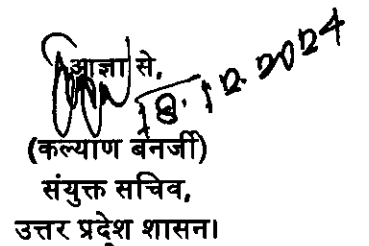 आज्ञा से,
18.12.2024
(कल्याण बनर्जी)
संयुक्त सचिव,
उत्तर प्रदेश शासन।